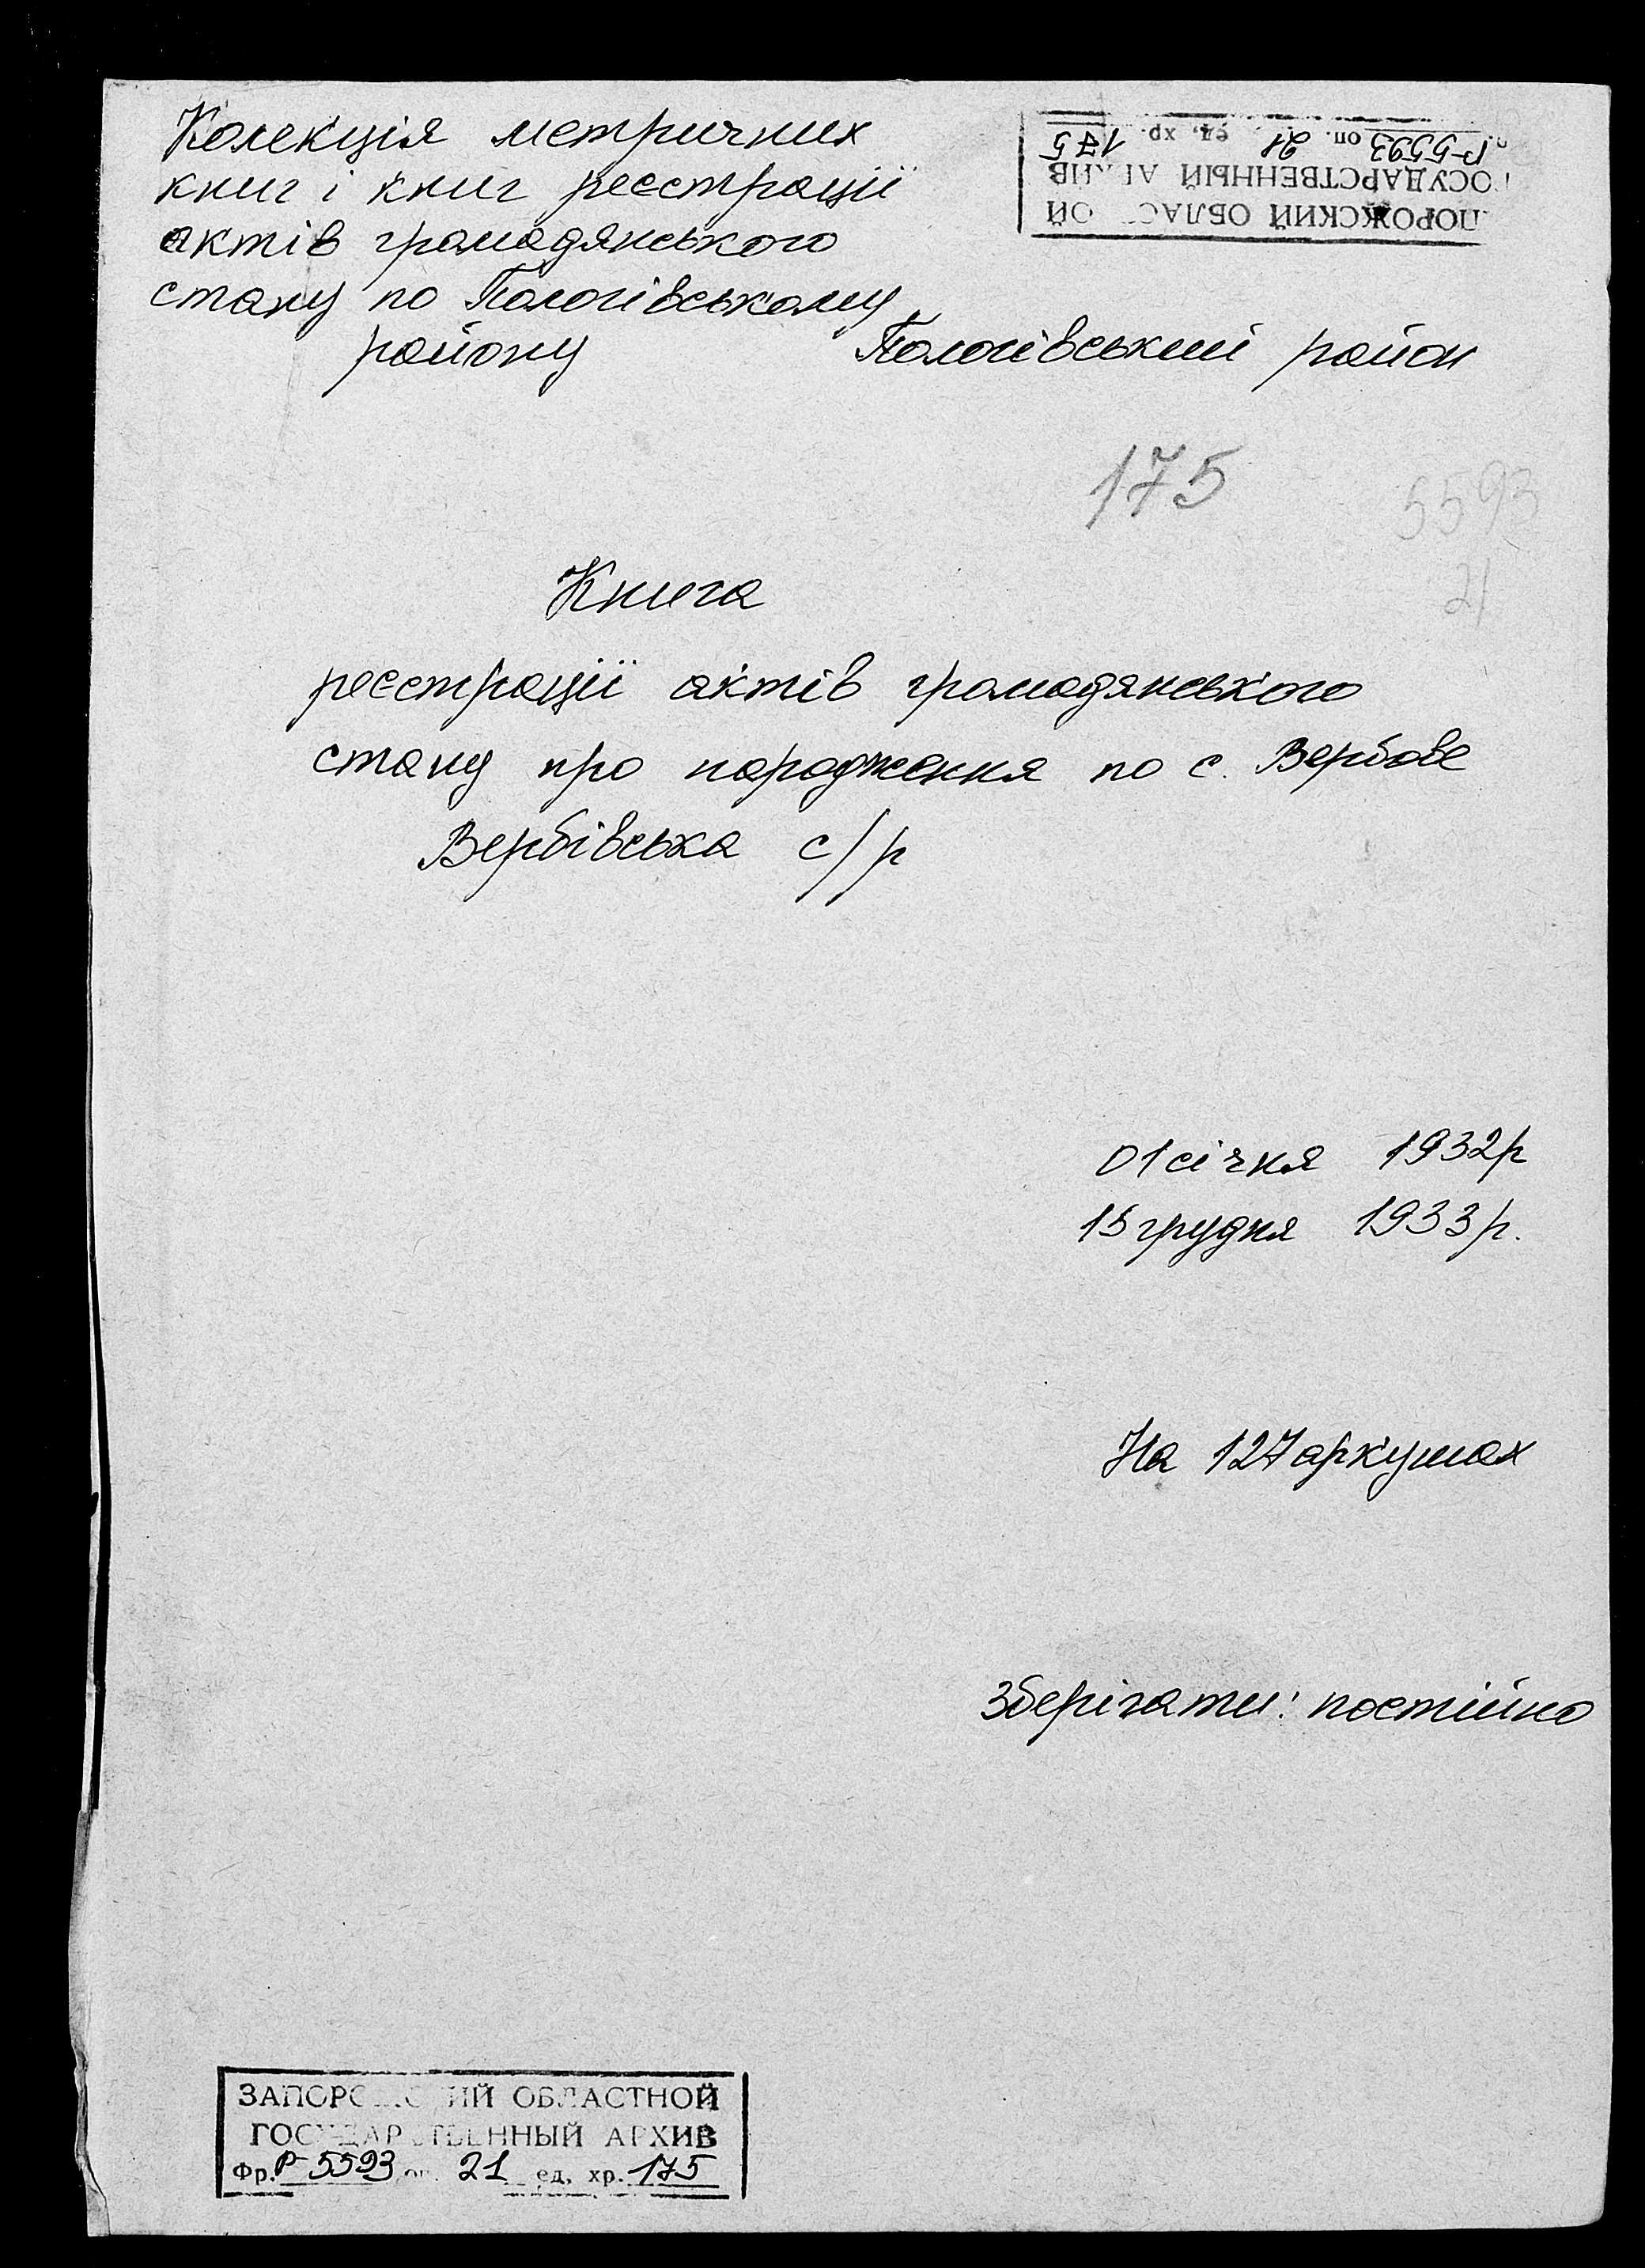 Колекція метричних
книг і книг реєстрації
актів громадянського
стану по Пологівському
району
ПОРОЖСКИЙ ОБЛАС ОЙ
ГОСУДАРСТВЕННЫЙ АРХИВ
Р-5593 оп. 21 ед. хр. 175
Пологівський район
175
5593
21
Книга
реєстрації актів громадянського
стану про народження по с. Вербове
Вербівська с/р
01 січня 1932р
15 грудня 1933р.
На 127 аркушах
Зберігати: постійно
ЗАПОРОЖСКИЙ ОБЛАСТНОЙ
ГОСУДАРСТВЕННЫЙ АРХИВ
Фр. Р-5593 оп. 21 ед. хр. 175